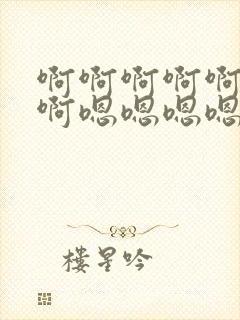 啊啊啊啊啊
啊嗯嗯嗯嗯
楼星吟